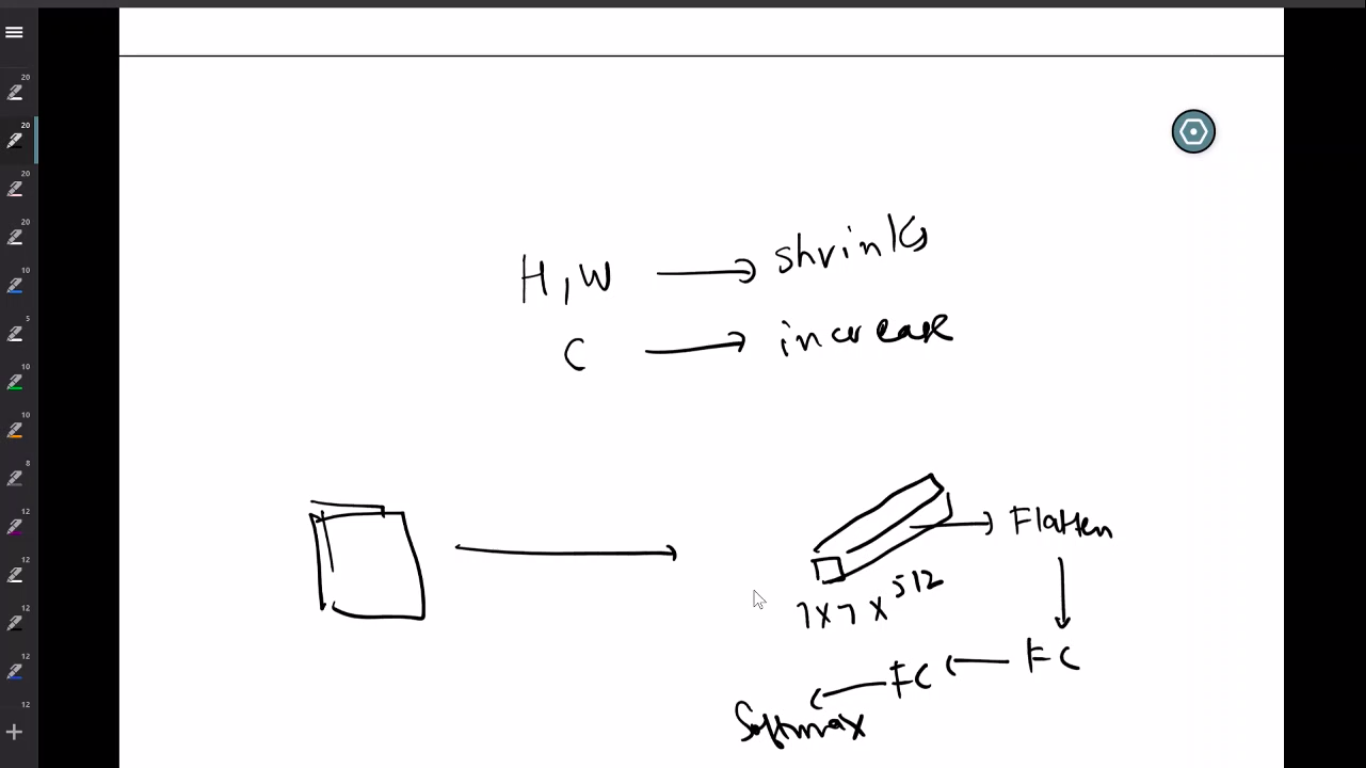 20
20
20
20
10
5
10
10
8
12
12
12
12
12
H, W → shrinks
C → increase
→ Flatten
7 x 7 x 512
FC ← FC
Softmax